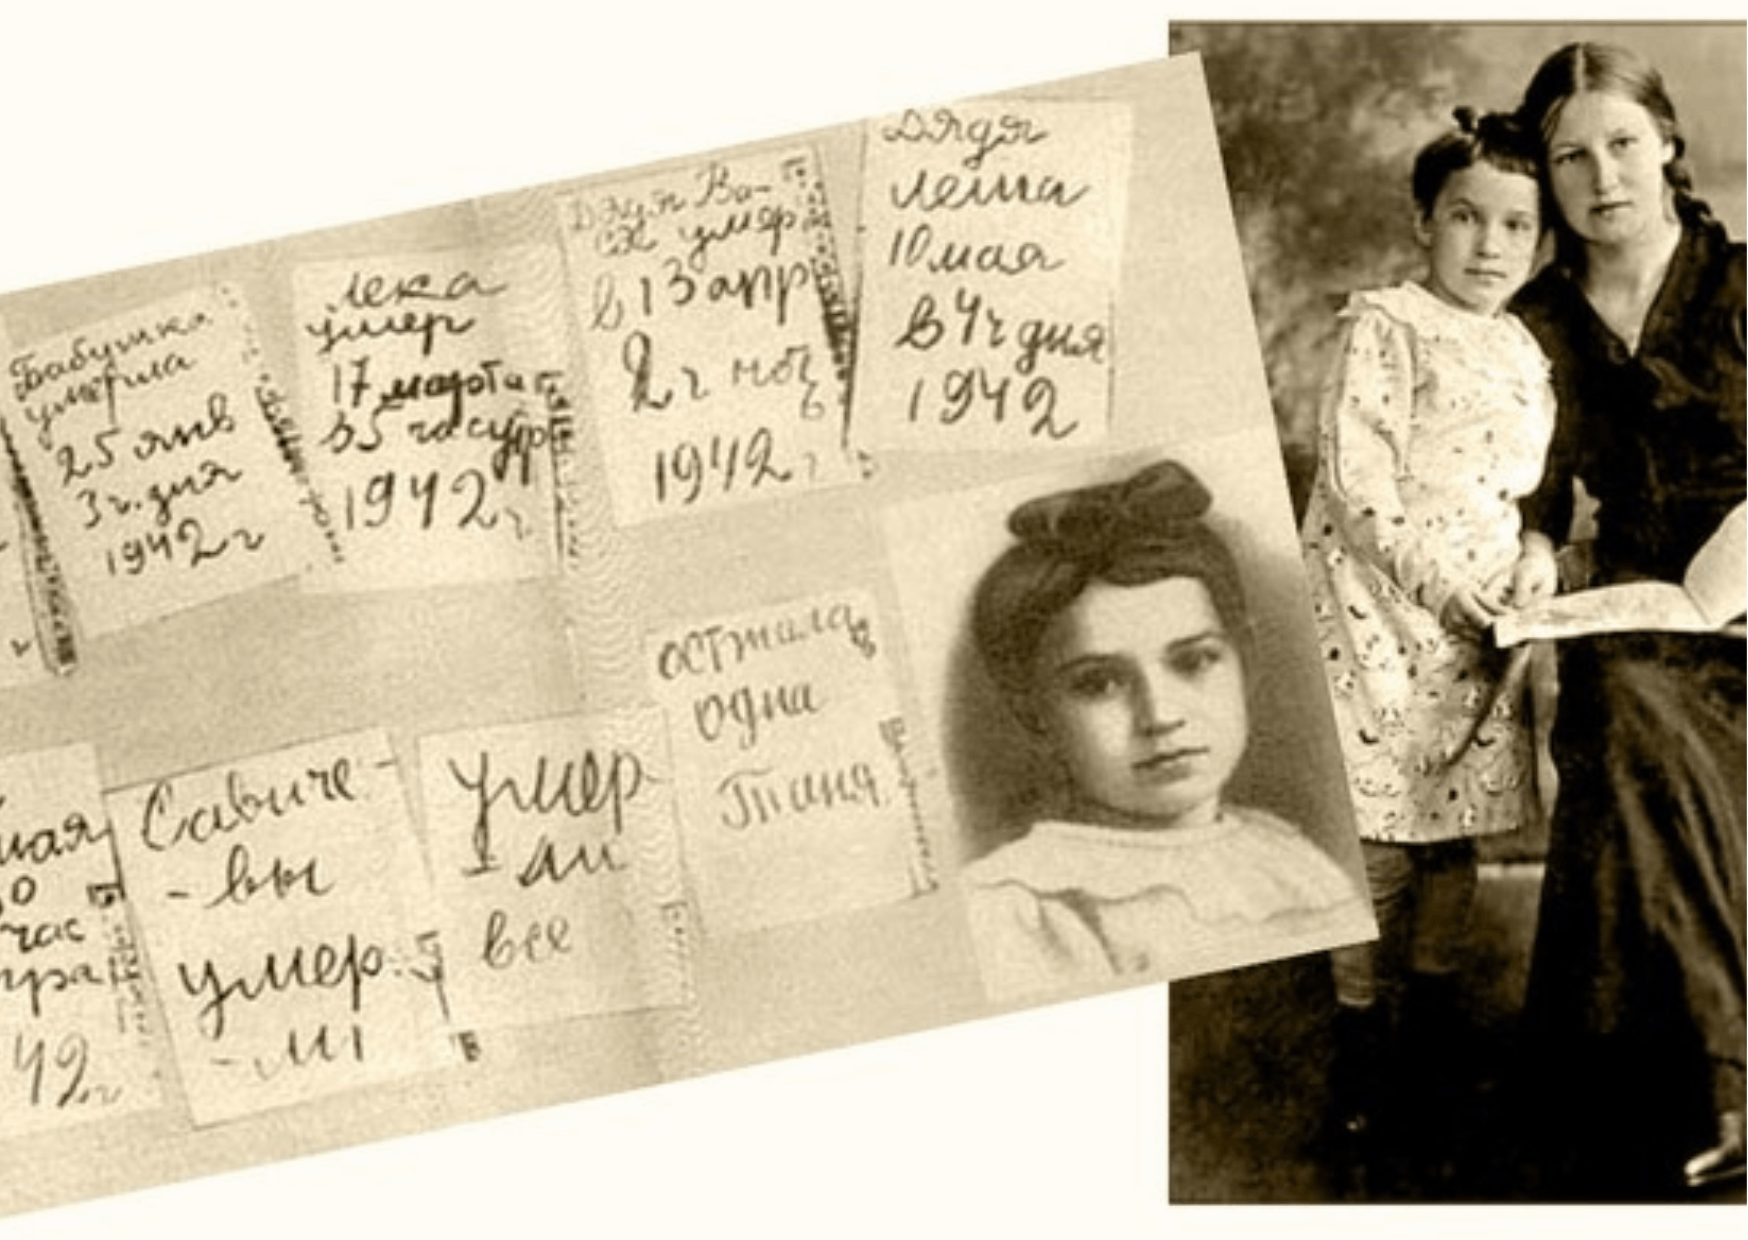 Бабушка
умерла
25 янв
3 ч. дня
1942 г
Лека
умер
17 марта
в 5 час утр
1942 г
Дядя Ва-
ся умер
в 13 апр
2 ч ночь
1942 г
Дядя
Леша
10 мая
в 4 ч дня
1942
мая
час
тра
42 г
Савиче-
-вы
умер
-ли
Умер
-ли
все
Осталась
одна
Таня